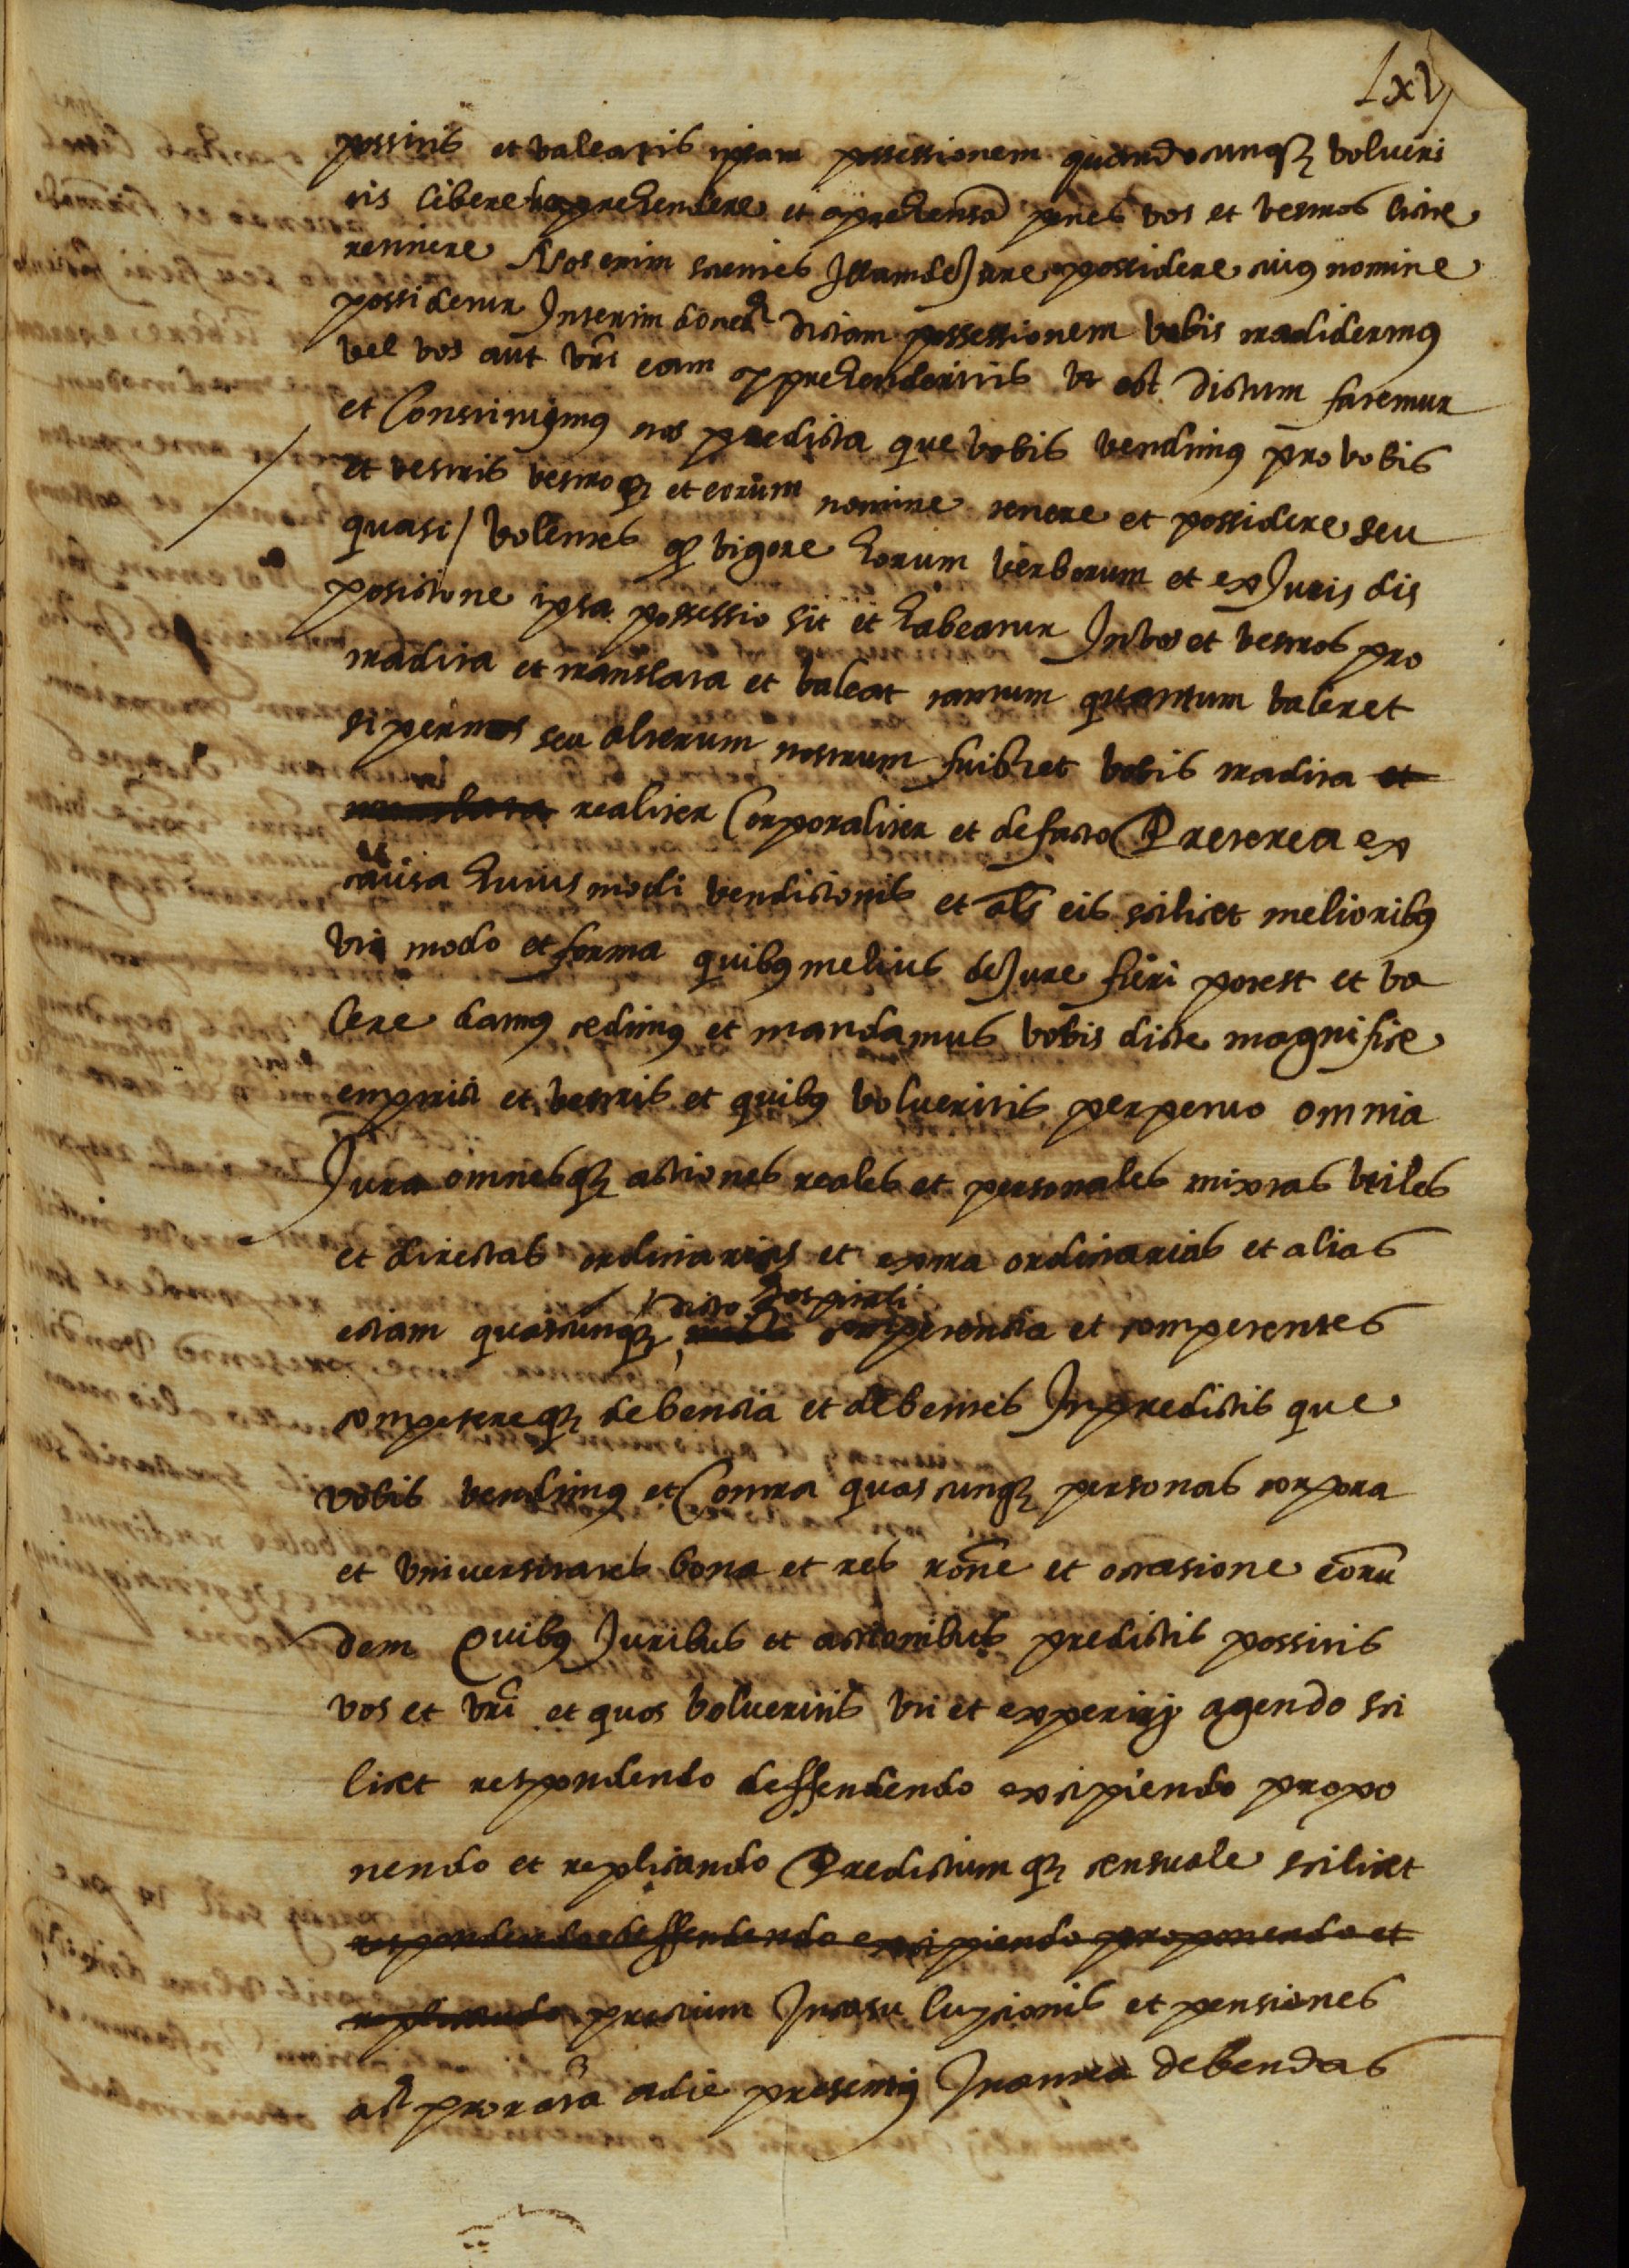 Lxv
possitis et valeatis ipsam possessionem quandocunqȝ volueri
tis libere apprehendere et aprehensã penes vos et vestros licite
retinere Nos enim scientes Illam de Jure possidere cuiꝰ nomine
possidetur Interim donec dictam possessionem vobis tradiderimꝰ
vel vos aut vrĩ eam apprehenderitis vt est dictum fatemur
et Constituimꝰ nos predicta que vobis vendimꝰ pro vobis
et vestris vestroqȝ et eorum nomine tenere et possidere seu
quasi / volentes qp vigore horum verborum et ex Juris dis
positione ipsa possessio sit et habeatur In vos et vestros pro
tradita et translata et valeat tantum quantum valeret
si per nos seu alterum nostrum fuisset vobis tradita et
translata realiter Corporaliter et de facto Preterea ex
causa huiusmodi venditionis et als eis scilicet melioribꝰ
via modo et forma quibꝰ melius de Jure fieri potest et va
lere damꝰ cedimꝰ et mandamus vobis dicte magnifice
emptrici et vestris et quibꝰ volueritis perpetuo omnia
Jura omnesqȝ actiones reales et personales mixtas vtiles
et directas ordinarias et extra ordinarias et alias
dicto hospitali
etiam quascunqȝ competentia et competentes
competereqȝ debentia et debentes In predictis que
vobis vendimꝰ et Contra quascunqȝ personas corpora
et vniversitates bona et res rõne et occasione eorũ
dem Quibꝰ Juribus et actionibus predictis possitis
vos et vrĩ et quos volueritis vti et experirj agendo sci
licet respondendo deffendendo excipiendo propo
nendo et replicando Predictumqȝ censuale scilicet
respondendo deffendendo excipiendo proponendo et
replicando precium In casu luytionis et pensiones
ac prorata a die presentiꝰ In antea debendas